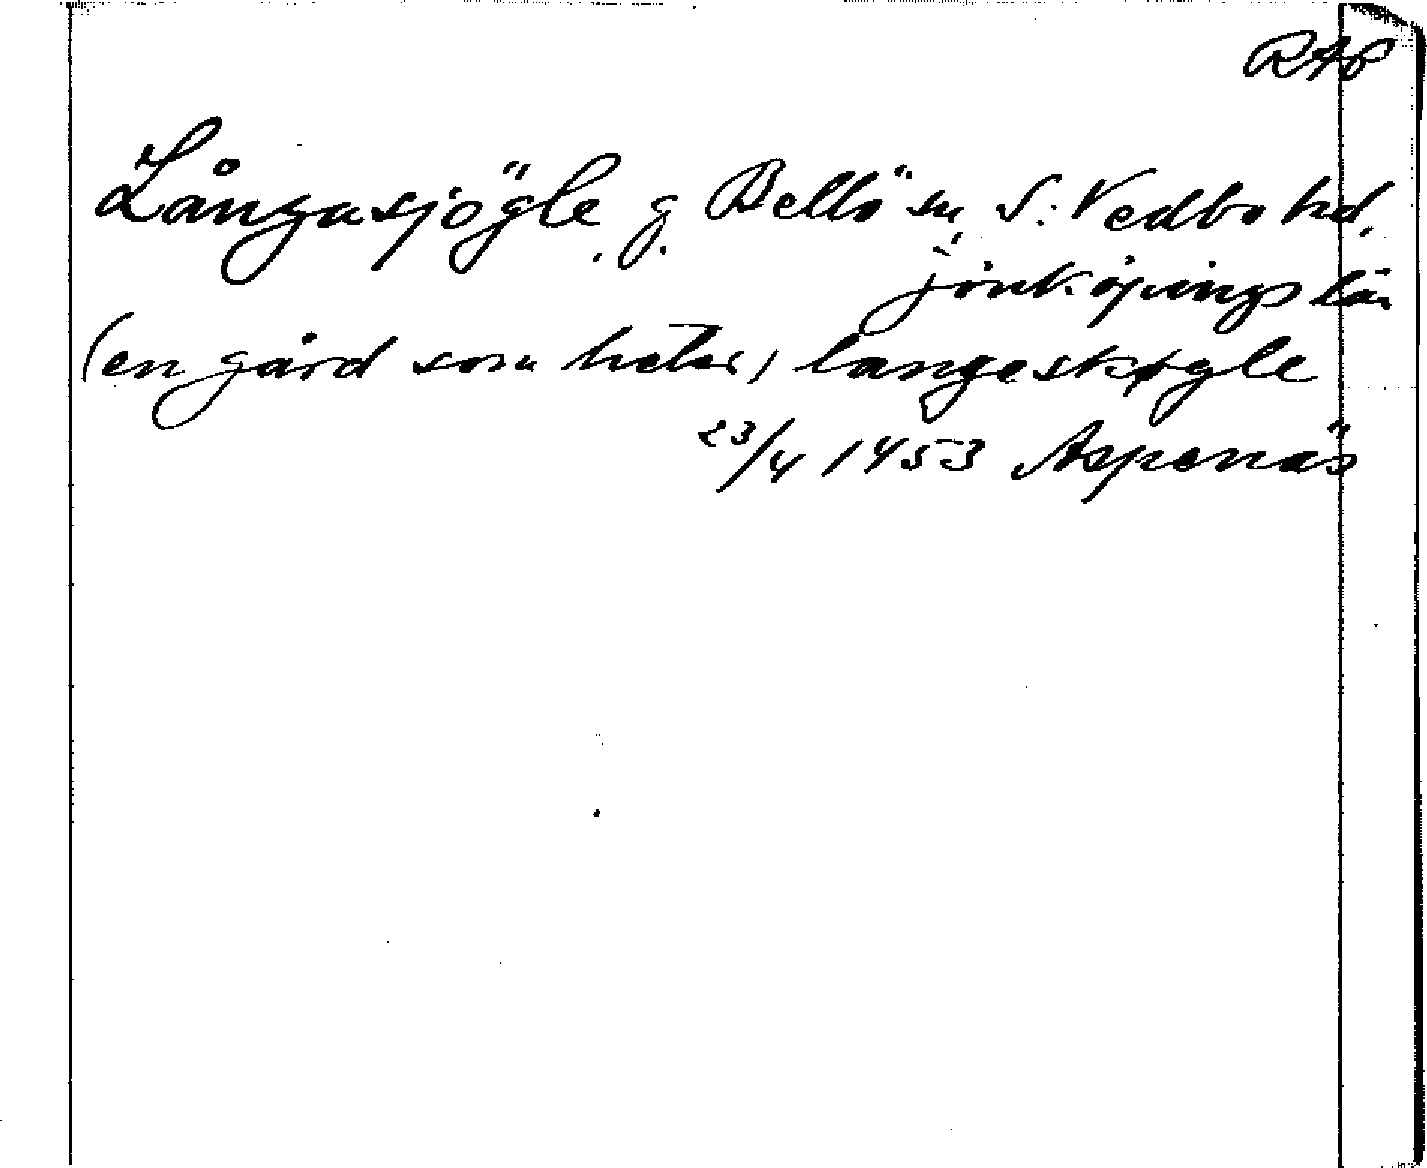 RAP
Långasjögle, g. Bellö sn, S: Vedbo hd,
Jönköpings län
(en gård som heter) langeskøgle
23/4 1453 Aspenäs